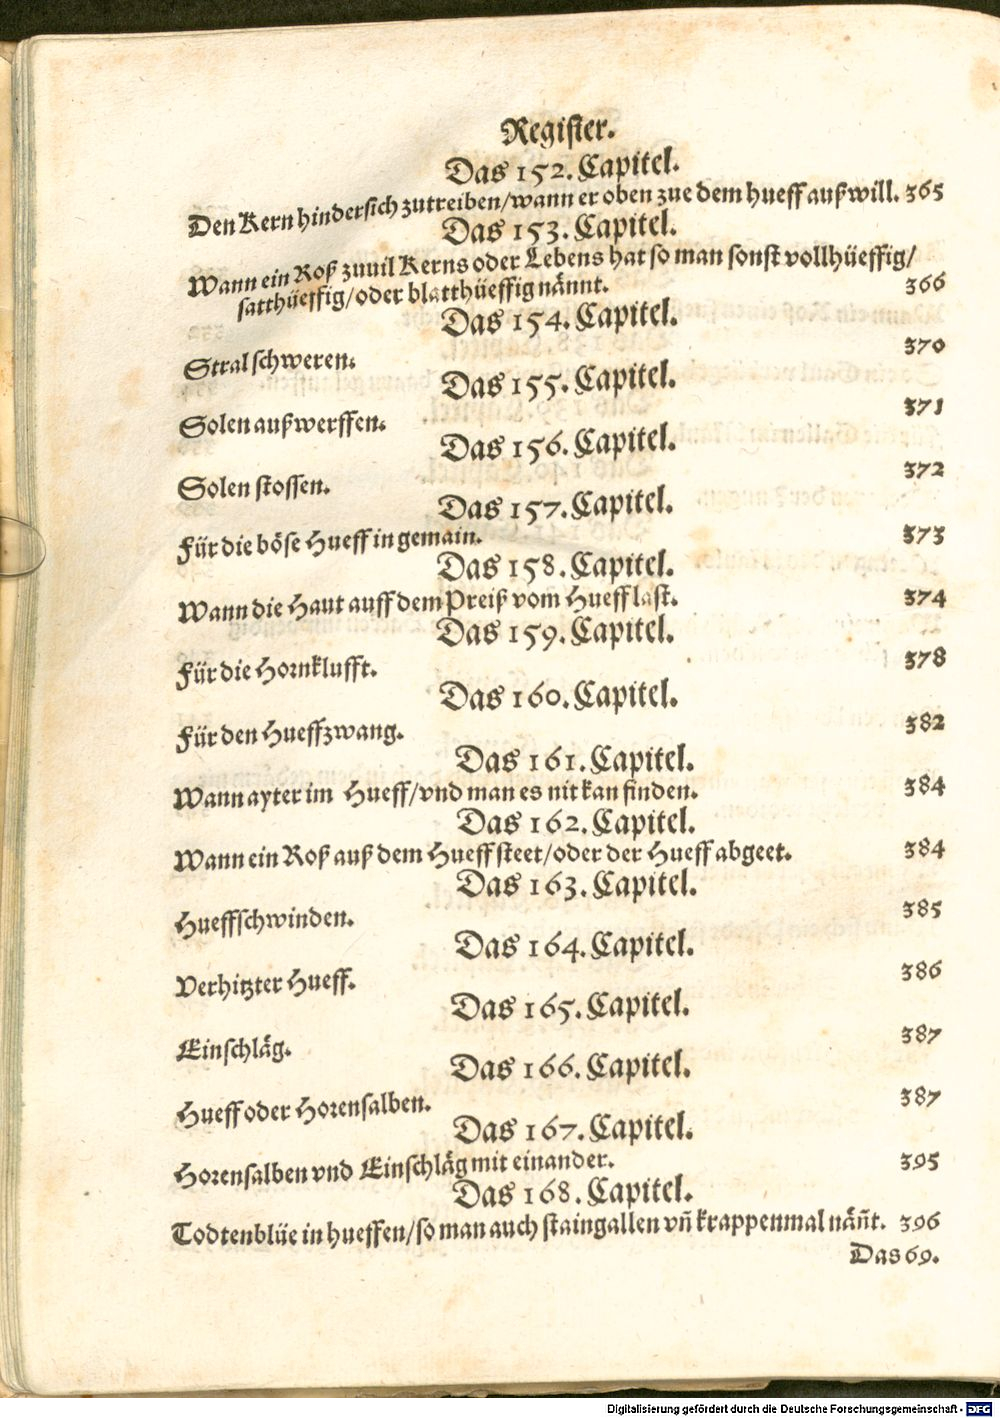 Register.
Das 152. Capitel.
Den Kern hindersich zutreiben/wann er oben zue dem hueff außwill. 365
Das 153. Capitel.
Wann ein Roß zuuil Kerns oder Lebens hat so man sonst vollhüeffig/
satthüeffig/oder blatthüeffig nännt. 366
Das 154. Capitel.
Stral schweren. 370
Das 155. Capitel.
Solen außwerffen. 371
Das 156. Capitel.
Solen stossen. 372
Das 157. Capitel.
Für die böse Hueff in gemain. 373
Das 158. Capitel.
Wann die Haut auff dem Preiß vom Hueff last. 374
Das 159. Capitel.
Für die Hornklufft. 378
Das 160. Capitel.
Für den Hueffzwang. 382
Das 161. Capitel.
Wann ayter im Hueff/vnd man es nit kan finden. 384
Das 162. Capitel.
Wann ein Roß auß dem Hueff steet/oder der Hueff abgeet. 384
Das 163. Capitel.
Hueffschwinden. 385
Das 164. Capitel.
Verhitzter Hueff. 386
Das 165. Capitel.
Einschläg. 387
Das 166. Capitel.
Hueff oder Horensalben. 387
Das 167. Capitel.
Horensalben vnd Einschläg mit einander. 395
Das 168. Capitel.
Todtenblüe in hueffen/so man auch staingallen vñ krappenmal näñt. 396
Das 69.
Digitalisierung gefördert durch die Deutsche Forschungsgemeinschaft - DFG